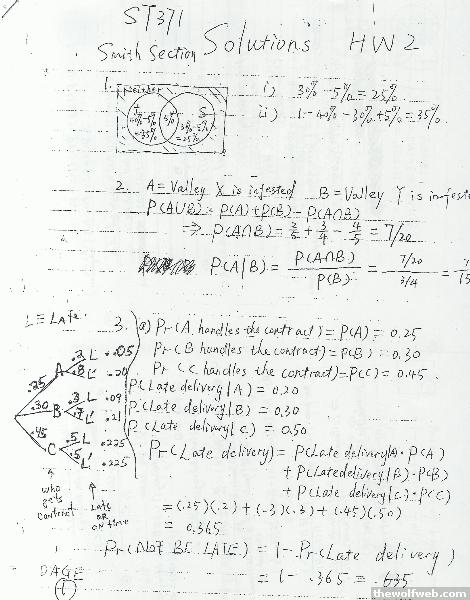 ST371
Smith Section Solutions HW 2
1. neither
T S
40%-5% =35% 5% 30%-5% =25%
i) 30% - 5% = 25%
ii) 1 - 40% - 30% + 5% = 35%
2. A = Valley X is infested B = Valley Y is infeste
P(A∪B) = P(A) + P(B) - P(A∩B)
⇒ P(A∩B) = 2/5 + 3/4 - 4/5 = 7/20
P(A|B) = P(A∩B) / P(B) = 7/20 / 3/4 = 7/15
L ≡ Late.
3. (a) Pr(A handles the contract) = P(A) = 0.25
Pr(B handles the contract) = P(B) = 0.30
Pr(C handles the contract) = P(C) = 0.45
P(Late delivery|A) = 0.20
P(Late delivery|B) = 0.30
P(Late delivery|C) = 0.50
Pr(Late delivery) = P(Late delivery|A)·P(A)
+ P(Late delivery|B)·P(B)
+ P(Late delivery|C)·P(C)
= (.25)(.2) + (.3)(.3) + (.45)(.50)
= 0.365
Pr(NOT BE LATE) = 1 - Pr(Late delivery)
= 1 - .365 = .635
.25 A .2 L .05
.8 L' .20
.30 B .3 L .09
.7 L' .21
.45 C .5 L .225
.5 L' .225
↑ who gets contract
↑ Late OR on time
PAGE 1
thewolfweb.com